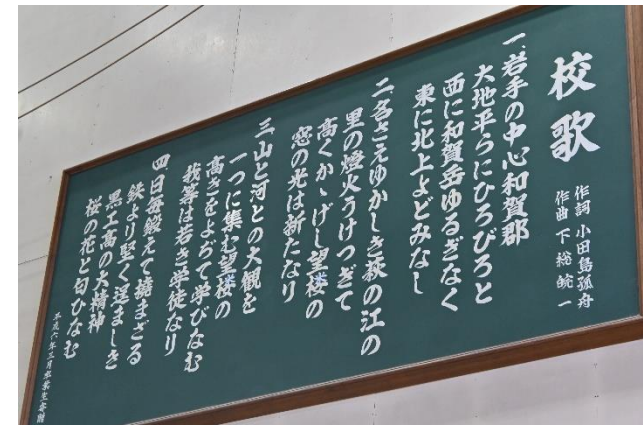 校歌
作詞 小田島孤舟
作曲 下総皖一
一、岩手の中心和賀郡
大地平らにひろびろと
西に和賀岳ゆるぎなく
東に北上よどみなし
二、名さえゆかしき萩の江の
里の燈火うけつぎて
高くかゝげし望楼の
窓の光は新たなり
三、山と河との大観を
一つに集む望楼の
高きをよぢて学びなむ
我等は若き学徒なり
四、日毎鍛えて撓まざる
鉄より堅く逞ましき
黒工高の大精神
桜の花と匂ひなむ
平成六年三月卒業生寄贈